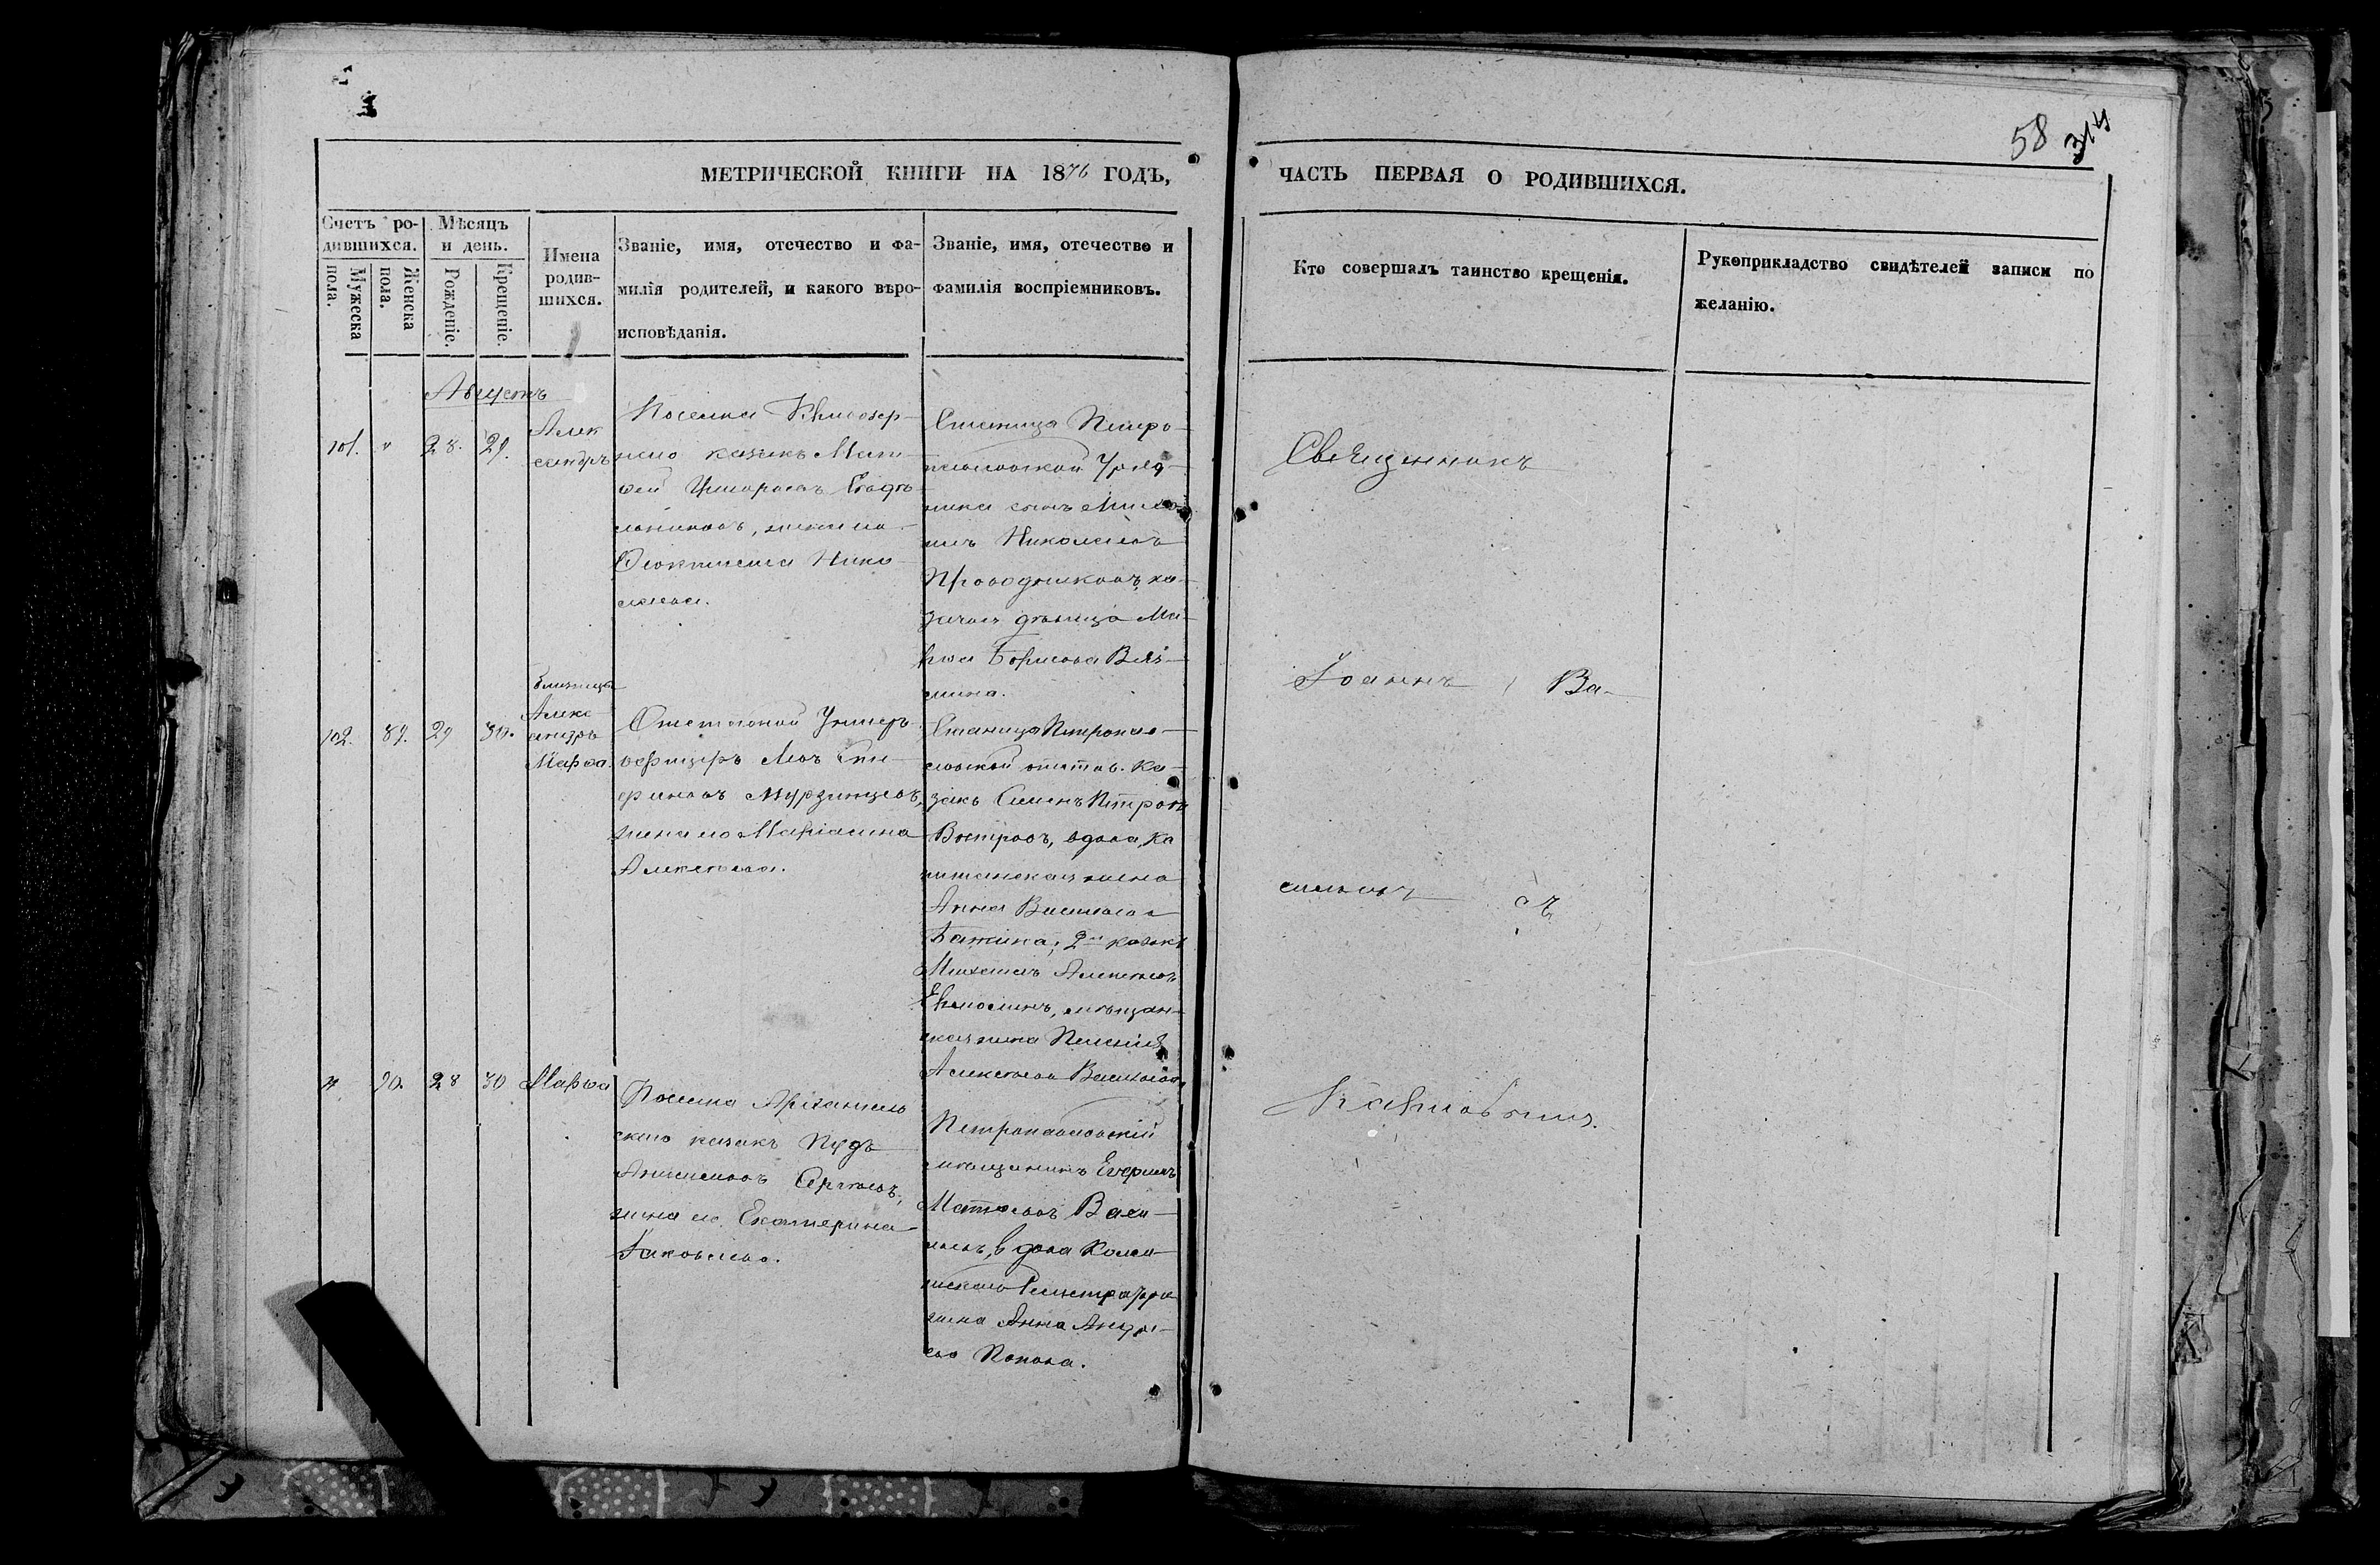 58 314
МЕТРИЧЕСКОЙ КНИГИ НА 1876 ГОДЪ,
ЧАСТЬ ПЕРВАЯ О РОДИВШИХСЯ.
Счетъ ро-
дившихся.
Мужеска пола.
Женска пола.
Мѣсяцъ
и день.
Рожденіе.
Крещеніе.
Имена
родив-
шихся.
Званіе, имя, отечество и фа-
милія родителей, и какого вѣро-
исповѣданія.
Званіе, имя, отечество и
фамилія воспріемниковъ.
Кто совершалъ таинство крещенія.
Рукоприкладство свидѣтелей записи по
желанію.
Августъ
101. " 28. 29.
Алек
сандръ
Поселка
казакъ Мат-
вей
жена его
Феоктиста Нико-
лаева.
Станицы Петро-
павловской Уряд-
ника сынъ Миха-
илъ Николаевъ
Проводниковъ, ка-
зачья дѣвица Ма-
рѳа Борисова
102. 89. 29 30.
близнецы
Алекс
андръ
Марѳа.
Отставной Унтеръ
офицеръ Левъ
Мурзинцевъ,
жена его Маріамна
Алексѣева.
Станицы Петропав-
ловской отстав. ка-
закъ Семенъ Петровъ
Востровъ, вдова, ка
питанская жена
Анна Васильева
Бажина; 2й казакъ
Михаилъ Алексѣевъ
мѣщан-
ская жена
Алексѣева Васильева
" 90. 28 30 Марѳа
Поселка Архангель
скаго казакъ Пудъ
Анисимовъ Сергѣевъ,
жена его Екатерина
Яковлева.
Петропавловскій
мѣщанинъ
Матвѣевъ
вдова Колле-
жскаго Регистратора
жена Анна Андре-
ева Попова.
Священникъ
Іоаннъ Ва-
сильевъ